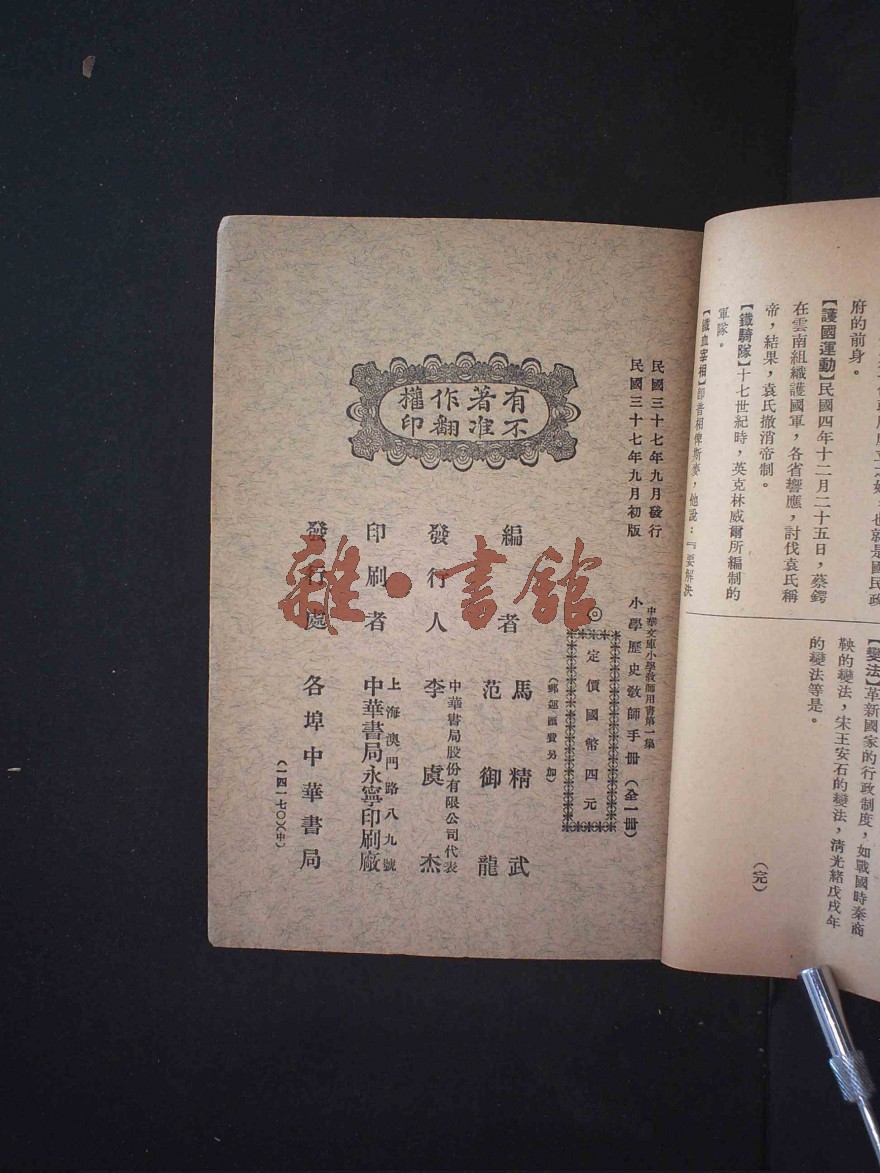 府的前身。
【護國運動】民國四年十二月二十五日，蔡鍔
在雲南組織護國軍，各省響應，討伐袁氏稱
帝，結果，袁氏撤消帝制。
【鐵騎隊】十七世紀時，英克林威爾所編制的
軍隊。
【鐵血宰相】即普相俾斯麥，他說：『要解決
【變法】革新國家的行政制度，如戰國時秦商
鞅的變法，宋王安石的變法，清光緒戊戌年
的變法等是。
（完）
民國三十七年九月發行
民國三十七年九月初版
中華文庫小學教師用書第一集
小學歷史教師手冊（全一冊）
◎定價國幣四元
（郵運匯費另加）
有著作權
不准翻印
編者
馬精武
范御龍
發行人
中華書局股份有限公司代表
李虞杰
印刷者
上海澳門路八九號
中華書局永寧印刷廠
發行處
各埠中華書局
（一四一七〇）（中）
雜·書館